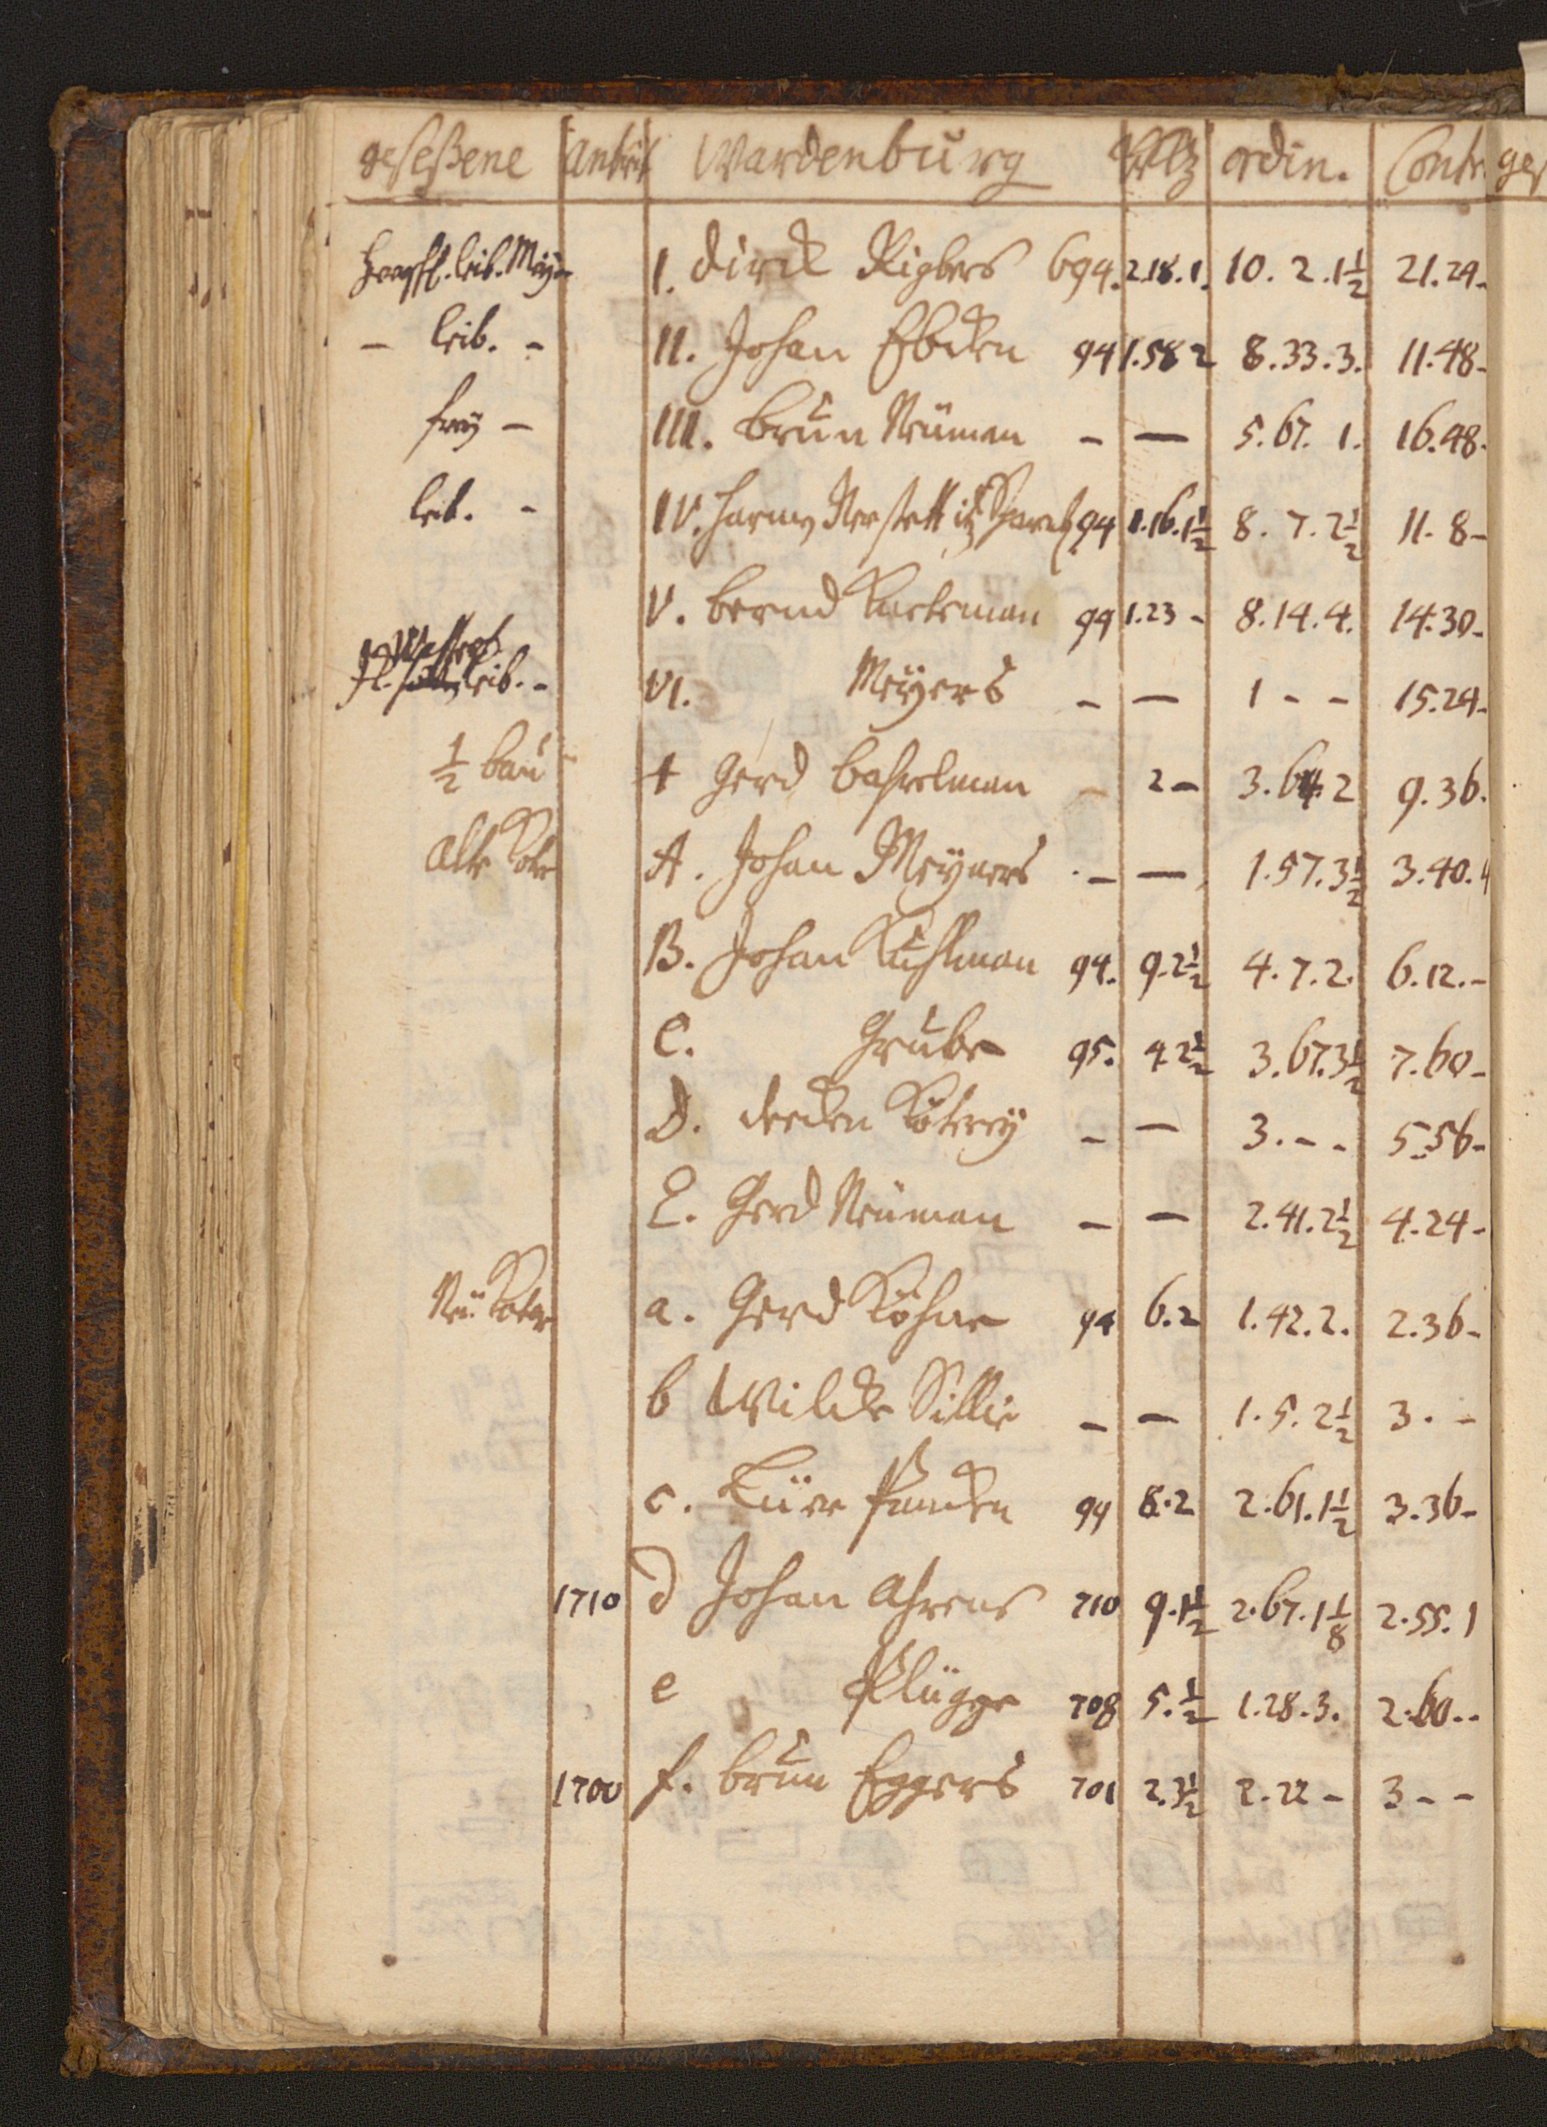 geseßene Antrit Wardenburg ordin. Contr. ges
leib. Mey. I. Dirck Rigbers 694. 2.18.1. 10. 2. 1½ 21.24.
- leib. - II. Johan Ebken 94 1.58 2 8.33.3. 11.48-
frey - III. Brun Neüman - — 5.67. 1. 16.48.
leib. - IV. Harmen 94 1.16.1½ 8. 7. 2½ 11. 8-
V. Bernd 99 1.23 - 8.14.4. 14.30-
leib. - VI. Meÿers - — 1 - - 15.24-
½ bau - + Gerd - 2 - 3.64.2 9.36.
alte Köter A. Johan Meÿners - — 1.57.3½ 3.40.4
B. Johan Kuhlman 94. 9.2½ 4.7.2. 6.12.-
C. Grube 95. 4 2½ 3.67.3½ 7.60-
D. Köterey - — 3. - - 5.56-
E. Gerd Neüman - — 2.41.2½ 4.24-
Neü Köter a. Gerd Köhne 94 6.2 1.42.2. 2.36-
b Wilcke Sillie - — 1.5.2½ 3. -
c. 99 8.2 2.61.1½ 3.36-
1710 d Johan Ahrens 710 9.1½ 2.67.1⅛ 2.55.1
e Plügge 708 5.½ 1.28.3. 2.60..
1700 f. Brun Eggers 701 2.3½ 2.22 - 3 - -